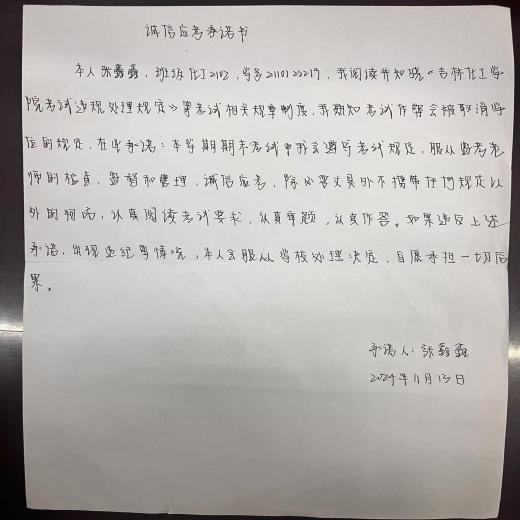 诚信应考承诺书
本人张鑫鑫，班级化工2102，学号21101235219，我阅读并知晓《吉林化工学
院考试违规处理规定》等考试相关规章制度，并熟知考试作弊会被取消学
位的规定，在此承诺：本学期期末考试中我会遵守考试规定，服从监考老
师的检查，监督和管理，诚信应考，除必要文具外不携带任何规定以
外的物品，认真阅读考试要求，认真审题，认真作答。如果违反上述
承诺，出现违纪等情况，本人会服从学校处理决定，自愿承担一切后
果。
承诺人：张鑫鑫
2024年11月13日